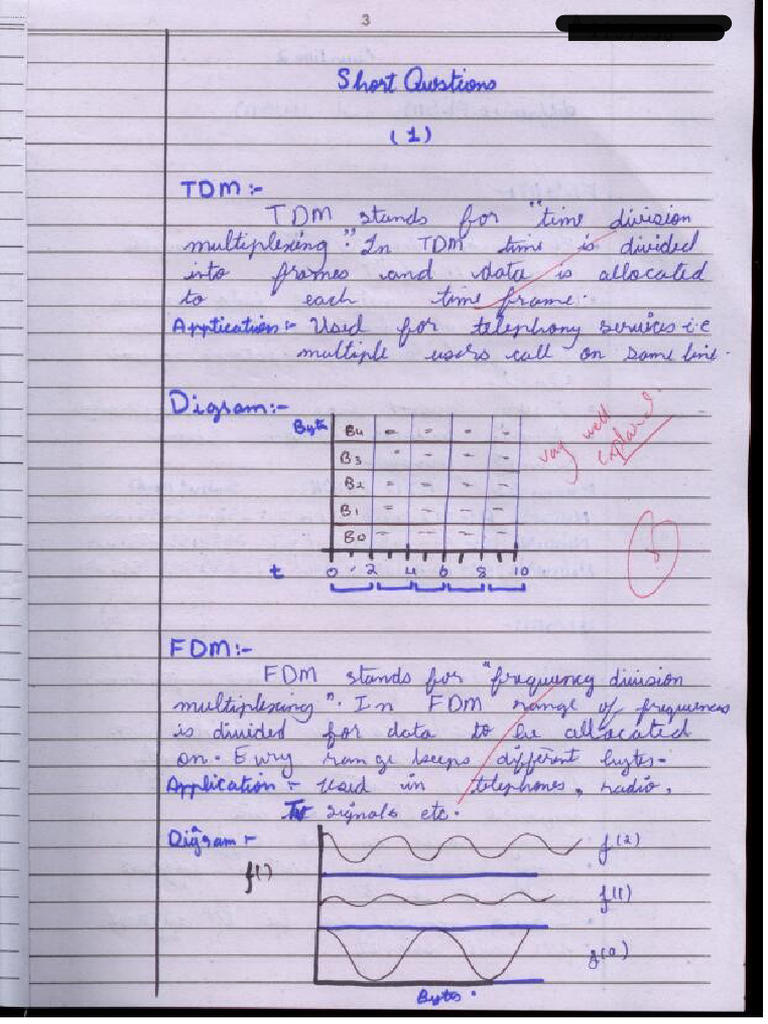 3
Short Questions
(1)
TDM:-
TDM stands for "time division
multiplexing". In TDM time is divided
into frames and data is allocated
to each time frame.
Application:- Used for telephony services i.e
multiple users call on same line.
Digram:-
Byte B4 - - - -
B3 - - - -
B2 - - - -
B1 - - - -
B0 - - - -
very well
explained
t 0 2 4 6 8 10
FDM:-
FDM stands for "frequency division
multiplexing". In FDM range of frequences
is divided for data to be allocated
on. Every range keeps different bytes.
Application:- Used in telephones, radio,
TV signals etc.
Digram:-
f(2)
f()
f(1)
f(0)
Bytes.